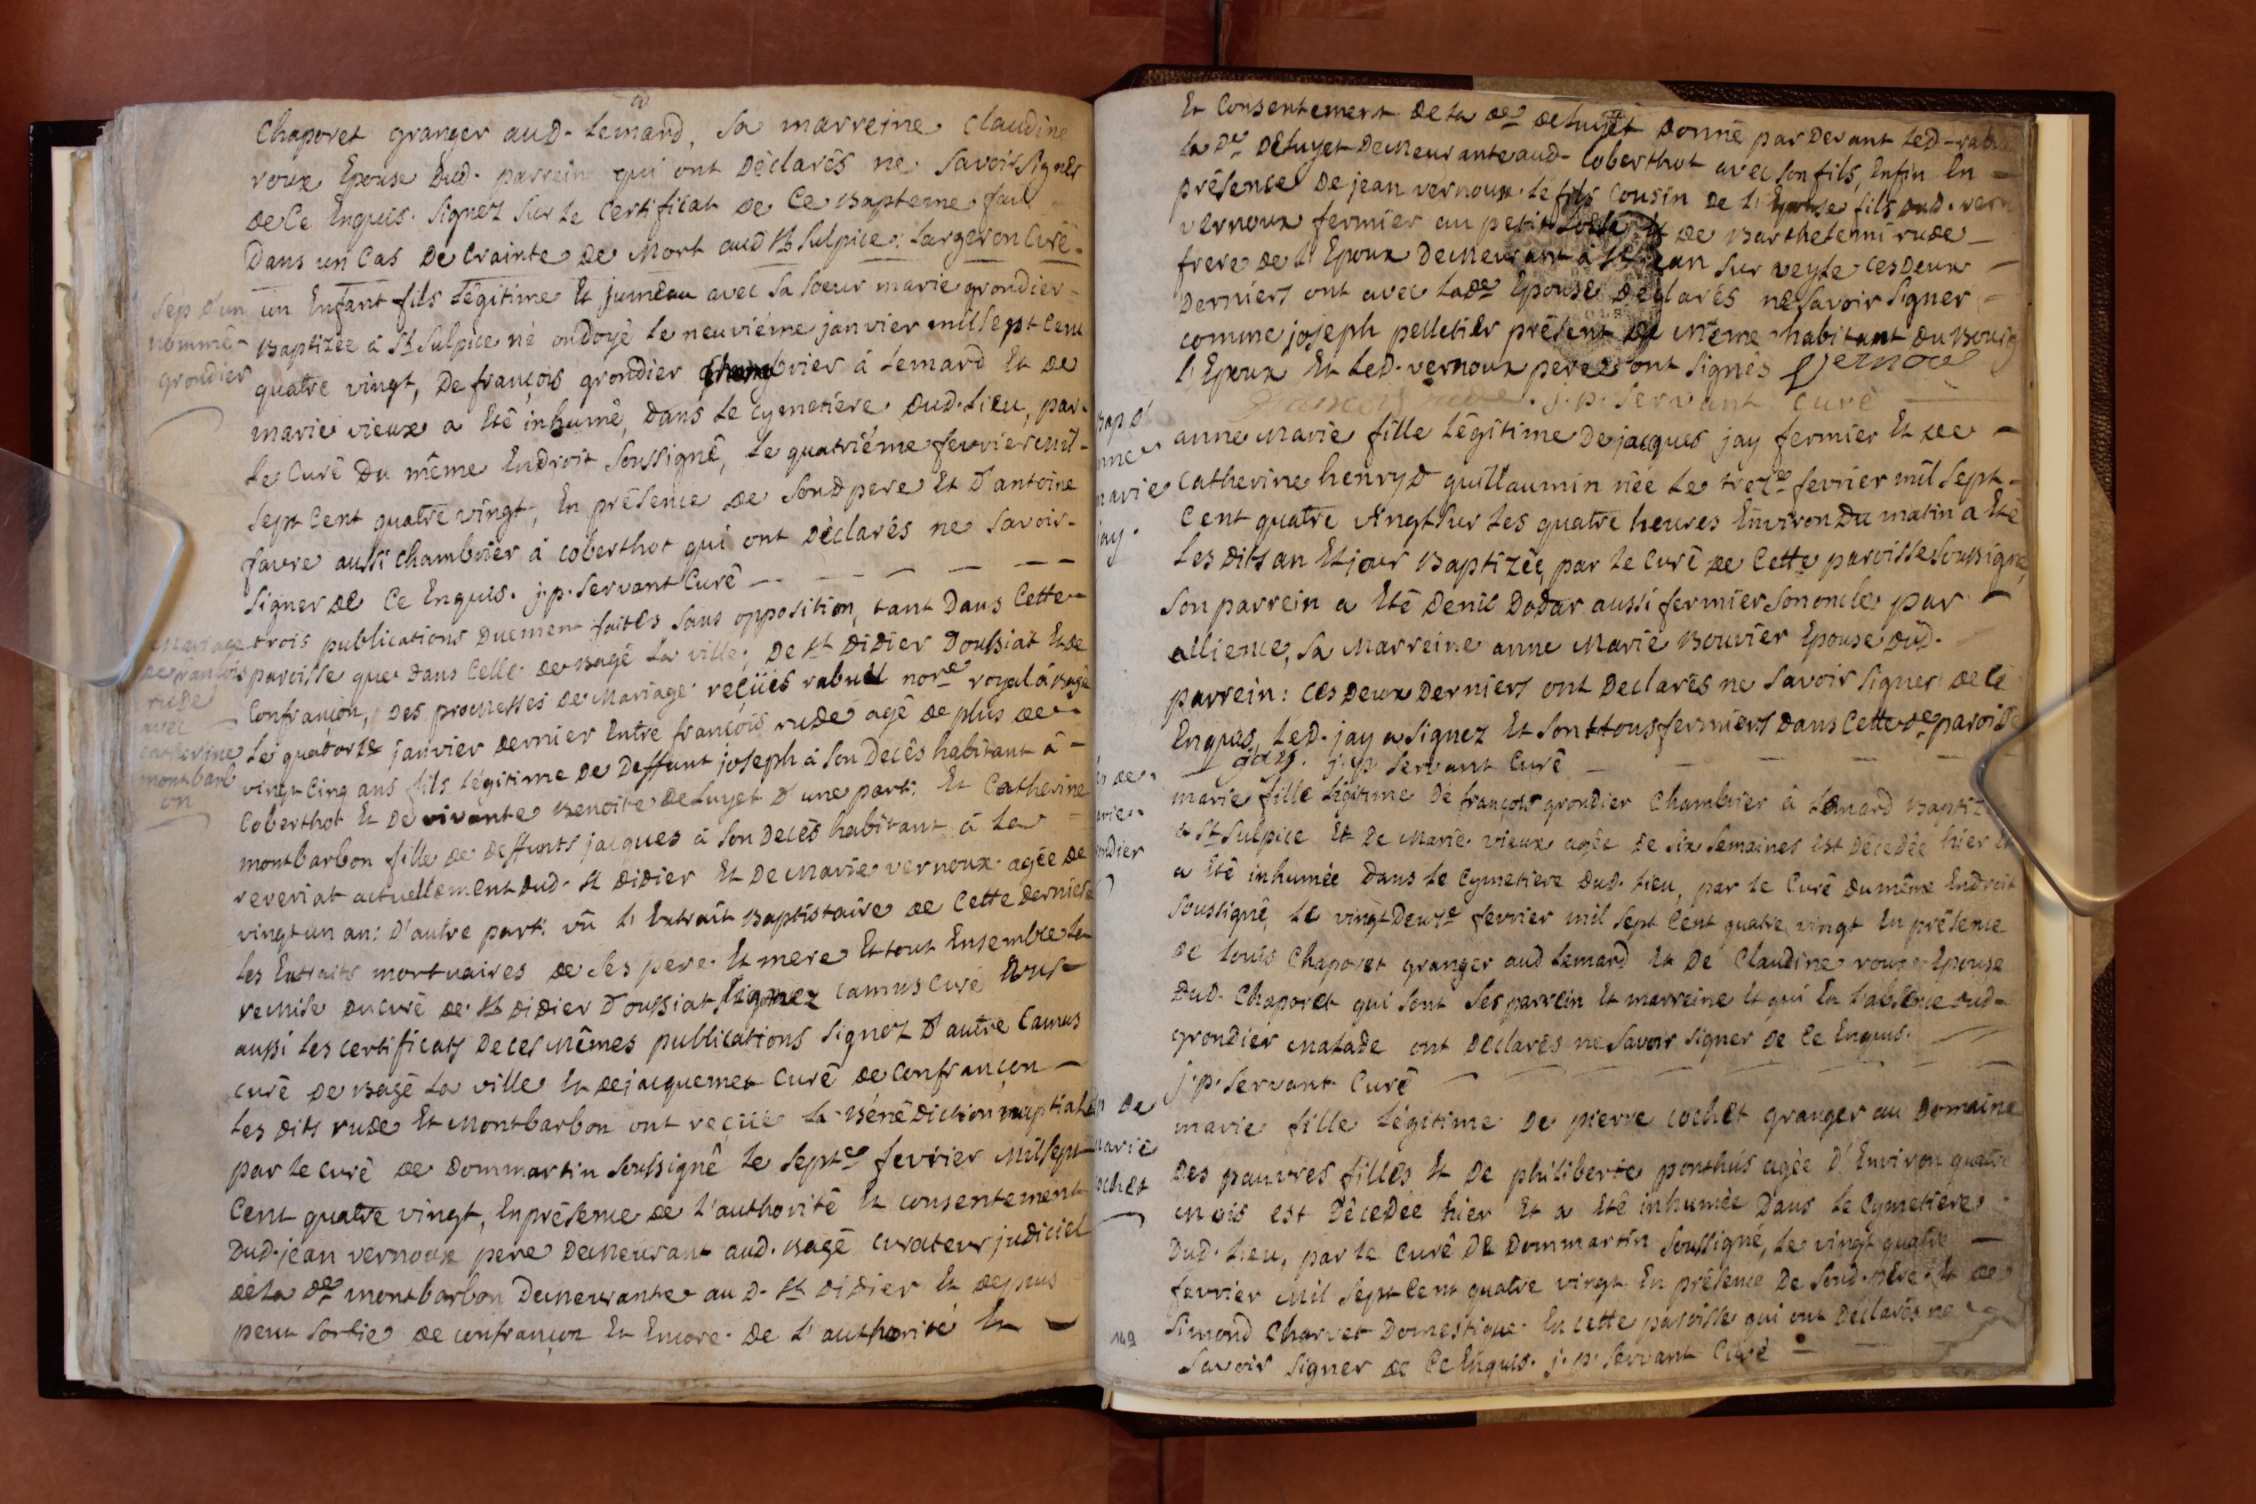 Chaporet granger aud. Lemard, sa marreine Claudine
roux Epouse dud. parrein qui ont Déclarés ne savoir signer
de ce Enquis. signez sur le Certificat de ce Baptême fait
Dans un Cas De Crainte De Mort aud St Sulpice: Largeron Curé.
Sep d'un
nommé
grondier
un Enfant fils légitime Et jumeau avec sa soeur marie grondier
Baptizée à St Sulpice né ondoyé le neuviéme janvier mil sept cent
quatre vingt, De françois grondier Chambrier à Lemard Et de
marie vieux a Eté inhumé, Dans le Cymetiere dud. Lieu, par
le Curé Du même Endroit soussigné, le quatriéme fevrier mil
sept Cent quatre vingt, En présence de sond pere Et d'antoine
favre aussi chambrier à Coberthot qui ont Déclarés ne savoir
signer de Ce Enquis. j. p. servant Curé
Mariage
de françois
rude
avec
Catherine
montbarb
on
trois publications Duement faites sans opposition, tant Dans Cette
paroisse que Dans Celle de Bagé la ville, De St Didier D'oussiat Et de
Confrançon, Des promesses de Mariage reçües rabuel nore royal à Bagé
Le quatorze janvier dernier Entre françois rude agé de plus de
vingt Cinq ans fils légitime De Deffunt joseph à son Decès habitant à
Coberthot Et De vivante Benoite Deluyet d'une part. Et Catherine
montbarbon fille de deffunts jacques à son Decès habitant à la
reveriat actuellement dud. St Didier Et De Marie vernoux agée de
vingt un an: D'autre part. vû l'Extrait Baptistaire de Cette derniere
les Extraits mortuaires de ses pere Et mere Et tout Ensemble la
remise du curé de St Didier D'oussiat signez Camus Curé
aussi les certificats De ces Mêmes publications signez D'autre Camus
curé de Bagé la ville Et de jacquemet Curé de Confrançon
les dits rude Et Montbarbon ont reçüe la Bénédiction nuptiale
par le Curé de Dommartin soussigné le septe fevrier Mil sept
Cent quatre vingt, En présence de l'authorité Et consentement
dud. jean vernoux pere Demeurant aud. Bagé curateur judiciel
de la de montbarbon Demeurante aud. St Didier Et depuis
peu sortie de confrançon Et Encore De l'authorité Et
Et Consentement de la de deluyet Donné par Devant led. rabuel
la De Deluyet Demeurante aud. Coberthot avec son fils, Enfin En
présence De jean vernoux le fils Cousin de l'Epouse fils dud.
vernoux fermier au petit de Barthelemi rude
frere de l'Epoux Demeurant à St jean sur veyle ces deux
Derniers ont avec lade Epouse déclarés ne savoir signer
comme joseph pelletier présent de Même habitant du Bourg
l'Epoux Et led. vernoux pere ont signés Vernoux
françois rude. j. p. servant Curé
Bap d'
anne
marie
jay.
anne marie fille légitime De jacques jay fermier Et de
Catherine henry d'guillaumin née le treize fevrier mil sept
Cent quatre vingt sur les quatre heures Environ Du matin a Eté
les dits an Et jour Baptizée par le Curé de Cette paroisse soussigné
son parrein a Eté Denis Dodar aussi fermier son oncle par
allience, sa Marreine anne Marie Bouvier Epouse dud.
parrein: ces deux Derniers ont Declarés ne savoir signer de ce
Enquis, led. jay a signez Et sont tous fermiers dans Cette de paroisse
jay. j. p. servant Curé
marie fille légitime De françois grondier Chambrier à Lemard Baptizée
à St Sulpice Et de Marie vieux agée de six semaines est Décedée hier Et
a Eté inhumée Dans le Cymetiere dud. lieu, par le Curé du même Endroit
soussigné, le vingt Deuxe fevrier mil sept Cent quatre vingt En présence
de louis Chaporet granger aud Lemard Et De Claudine roux Epouse
dud. Chaporet qui sont ses parrein Et marreine Et qui En l'absence dud
grondier malade ont Declarés ne savoir signer de ce Enquis.
j. p. servant Curé
marie
cochet
marie fille légitime De pierre cochet granger au Domaine
Des pauvres filles Et De philiberte ponthus agée D'Environ quatre
mois est Décedée hier Et a Eté inhumée Dans le Cymetiere
Dud. lieu, par le Curé De Dommartin soussigné, le vingt quatre
fevrier Mil sept Cent quatre vingt En présence De sond. pere Et de
simond Charvet Domestique En cette paroisse qui ont Déclarés ne
savoir signer de ce Enquis. j. p. servant Curé
149